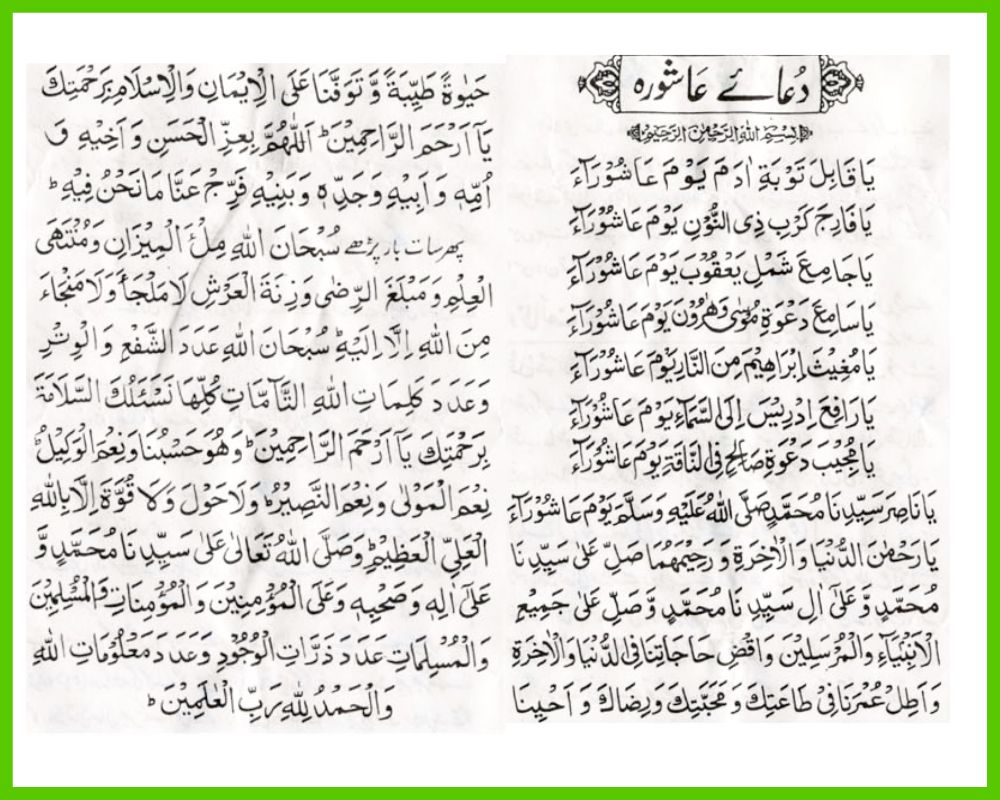 دُعائے عاشورہ
بِسْمِ اللهِ الرَّحْمٰنِ الرَّحِيْمِ
يَا قَابِلَ تَوْبَةِ اٰدَمَ يَوْمَ عَاشُوْرَآءَ
يَا فَارِجَ كَرْبِ ذِى النُّوْنِ يَوْمَ عَاشُوْرَآءَ
يَا جَامِعَ شَمْلِ يَعْقُوْبَ يَوْمَ عَاشُوْرَآءَ
يَا سَامِعَ دَعْوَةِ مُوْسٰى وَهٰرُوْنَ يَوْمَ عَاشُوْرَآءَ
يَا مُغِيْثَ اِبْرَاهِيْمَ مِنَ النَّارِ يَوْمَ عَاشُوْرَآءَ
يَا رَافِعَ اِدْرِيْسَ اِلَى السَّمَآءِ يَوْمَ عَاشُوْرَآءَ
يَا مُجِيْبَ دَعْوَةِ صَالِحٍ فِى النَّاقَةِ يَوْمَ عَاشُوْرَآءَ
يَا نَاصِرَ سَيِّدِنَا مُحَمَّدٍ صَلَّى اللهُ عَلَيْهِ وَسَلَّمَ يَوْمَ عَاشُوْرَآءَ
يَا رَحْمٰنَ الدُّنْيَا وَالْاٰخِرَةِ وَرَحِيْمَهُمَا صَلِّ عَلٰى سَيِّدِنَا
مُحَمَّدٍ وَّعَلٰى اٰلِ سَيِّدِنَا مُحَمَّدٍ وَّصَلِّ عَلٰى جَمِيْعِ
الْاَنْبِيَآءِ وَالْمُرْسَلِيْنَ وَاقْضِ حَاجَاتِنَا فِى الدُّنْيَا وَالْاٰخِرَةِ
وَاَطِلْ عُمْرَنَا فِىْ طَاعَتِكَ وَمَحَبَّتِكَ وَرِضَاكَ وَاَحْيِنَا
حَيٰوةً طَيِّبَةً وَّتَوَفَّنَا عَلَى الْاِيْمَانِ وَالْاِسْلَامِ بِرَحْمَتِكَ
يَآ اَرْحَمَ الرَّاحِمِيْنَ ؕ اَللّٰهُمَّ بِعِزِّ الْحَسَنِ وَاَخِيْهِ وَ
اُمِّهٖ وَاَبِيْهِ وَجَدِّهٖ وَبَنِيْهِ فَرِّجْ عَنَّا مَا نَحْنُ فِيْهِ ؕ
پھر سات بار پڑھے سُبْحَانَ اللهِ مِلْءَ الْمِيْزَانِ وَمُنْتَهَى
الْعِلْمِ وَمَبْلَغَ الرِّضٰى وَزِنَةَ الْعَرْشِ لَا مَلْجَأَ وَلَا مَنْجَاءَ
مِنَ اللهِ اِلَّا اِلَيْهِ ؕ سُبْحَانَ اللهِ عَدَدَ الشَّفْعِ وَالْوِتْرِ
وَعَدَدَ كَلِمَاتِ اللهِ التَّآمَّاتِ كُلِّهَا نَسْئَلُكَ السَّلَامَةَ
بِرَحْمَتِكَ يَآ اَرْحَمَ الرَّاحِمِيْنَ ؕ وَهُوَ حَسْبُنَا وَنِعْمَ الْوَكِيْلُ ؕ
نِعْمَ الْمَوْلٰى وَنِعْمَ النَّصِيْرُ ؕ وَلَا حَوْلَ وَلَا قُوَّةَ اِلَّا بِاللهِ
الْعَلِىِّ الْعَظِيْمِ ؕ وَصَلَّى اللهُ تَعَالٰى عَلٰى سَيِّدِنَا مُحَمَّدٍ وَّ
عَلٰى اٰلِهٖ وَصَحْبِهٖ وَعَلَى الْمُؤْمِنِيْنَ وَالْمُؤْمِنَاتِ وَالْمُسْلِمِيْنَ
وَالْمُسْلِمَاتِ عَدَدَ ذَرَّاتِ الْوُجُوْدِ وَعَدَدَ مَعْلُوْمَاتِ اللهِ
وَالْحَمْدُ لِلّٰهِ رَبِّ الْعٰلَمِيْنَ ؕ